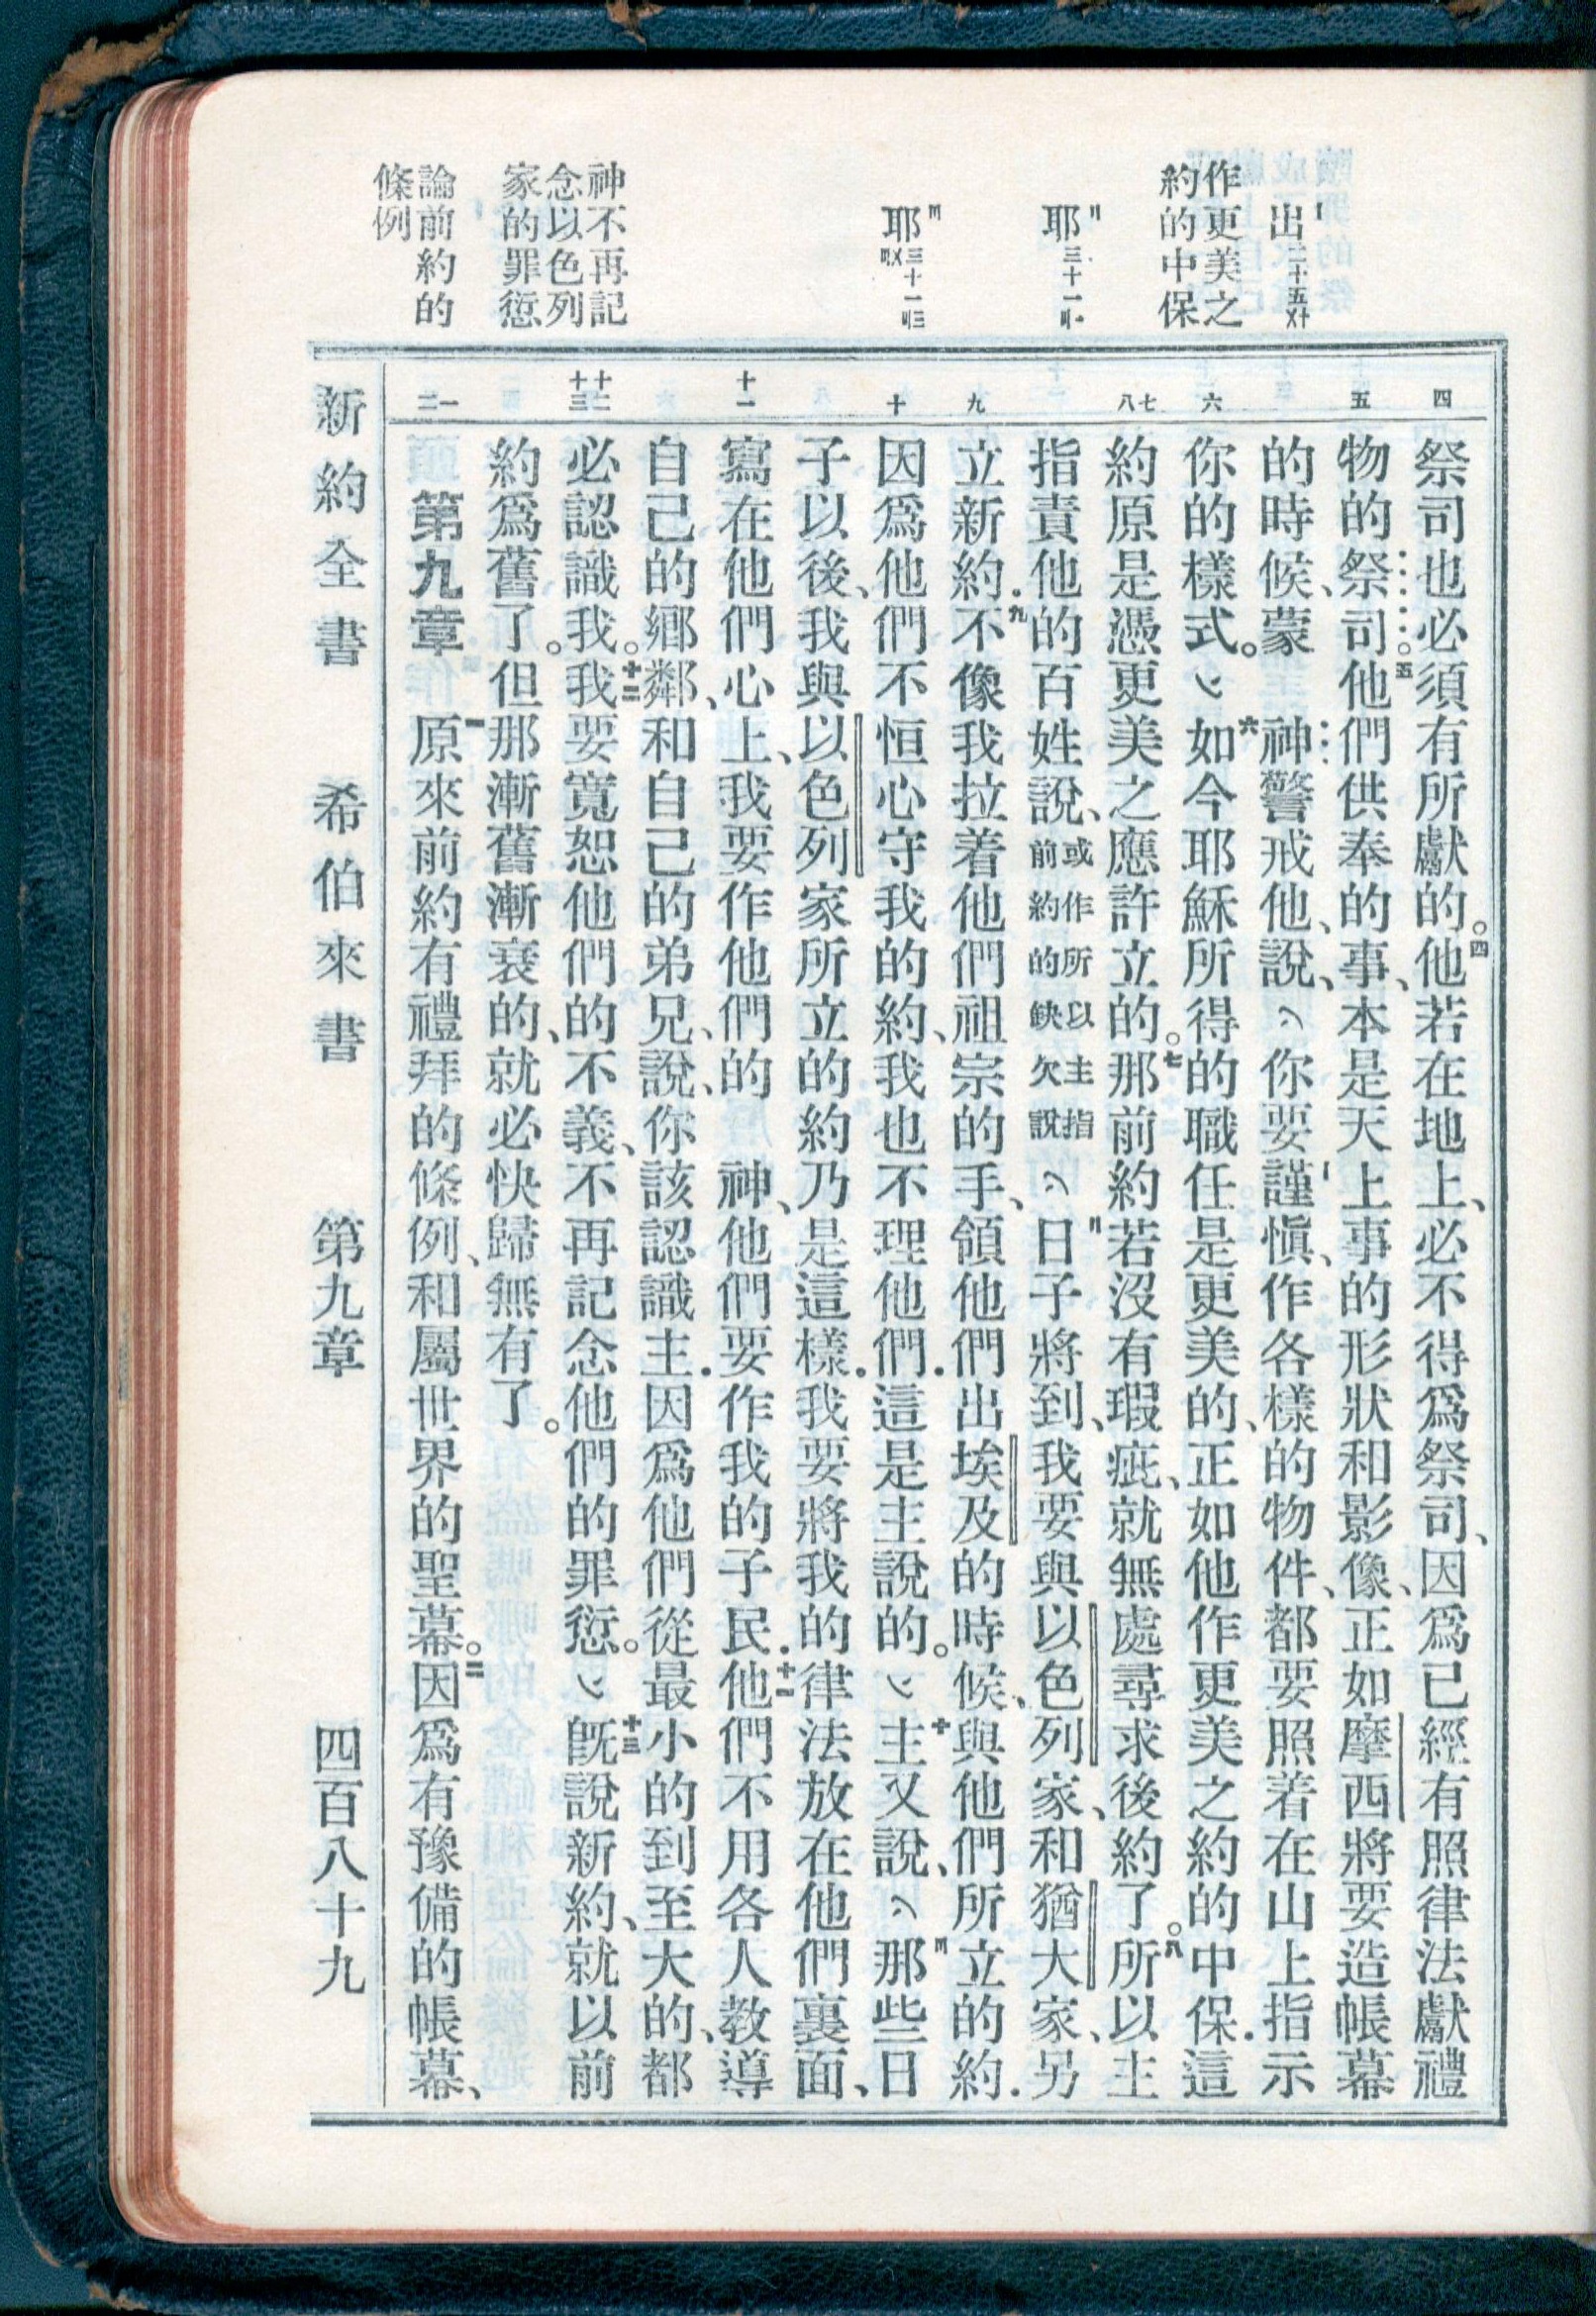 出二十五
作更美之
約的中保
耶三十一
耶三十一
神不再記
念以色列
家的罪愆
論前約的
條例
四
五
六
七
八
九
十
十一
十二
十三
一
二
祭司也必須有所獻的。四他若在地上、必不得爲祭司、因爲已經有照律法獻禮
物的祭司。五他們供奉的事、本是天上事的形狀和影像、正如摩西將要造帳幕
的時候、蒙　神警戒他、說、你要謹愼、作各樣的物件、都要照着在山上指示
你的樣式。六如今耶穌所得的職任是更美的、正如他作更美之約的中保．這
約原是憑更美之應許立的。七那前約若沒有瑕疵、就無處尋求後約了。八所以主
指責他的百姓說、或作所以主指前約的缺欠說日子將到、我要與以色列家、和猶大家、另
立新約．九不像我拉着他們祖宗的手、領他們出埃及的時候、與他們所立的約．
因爲他們不恒心守我的約、我也不理他們．這是主說的。十主又說、那些日
子以後、我與以色列家所立的約乃是這樣．我要將我的律法放在他們裏面、
寫在他們心上、我要作他們的　神、他們要作我的子民．十一他們不用各人教導
自己的鄉鄰、和自己的弟兄、說、你該認識主．因爲他們從最小的到至大的、都
必認識我。十二我要寬恕他們的不義、不再記念他們的罪愆。十三旣說新約、就以前
約爲舊了。但那漸舊漸衰的、就必快歸無有了。
第九章　一原來前約有禮拜的條例、和屬世界的聖幕。二因爲有豫備的帳幕、
新約全書　希伯來書　第九章　四百八十九